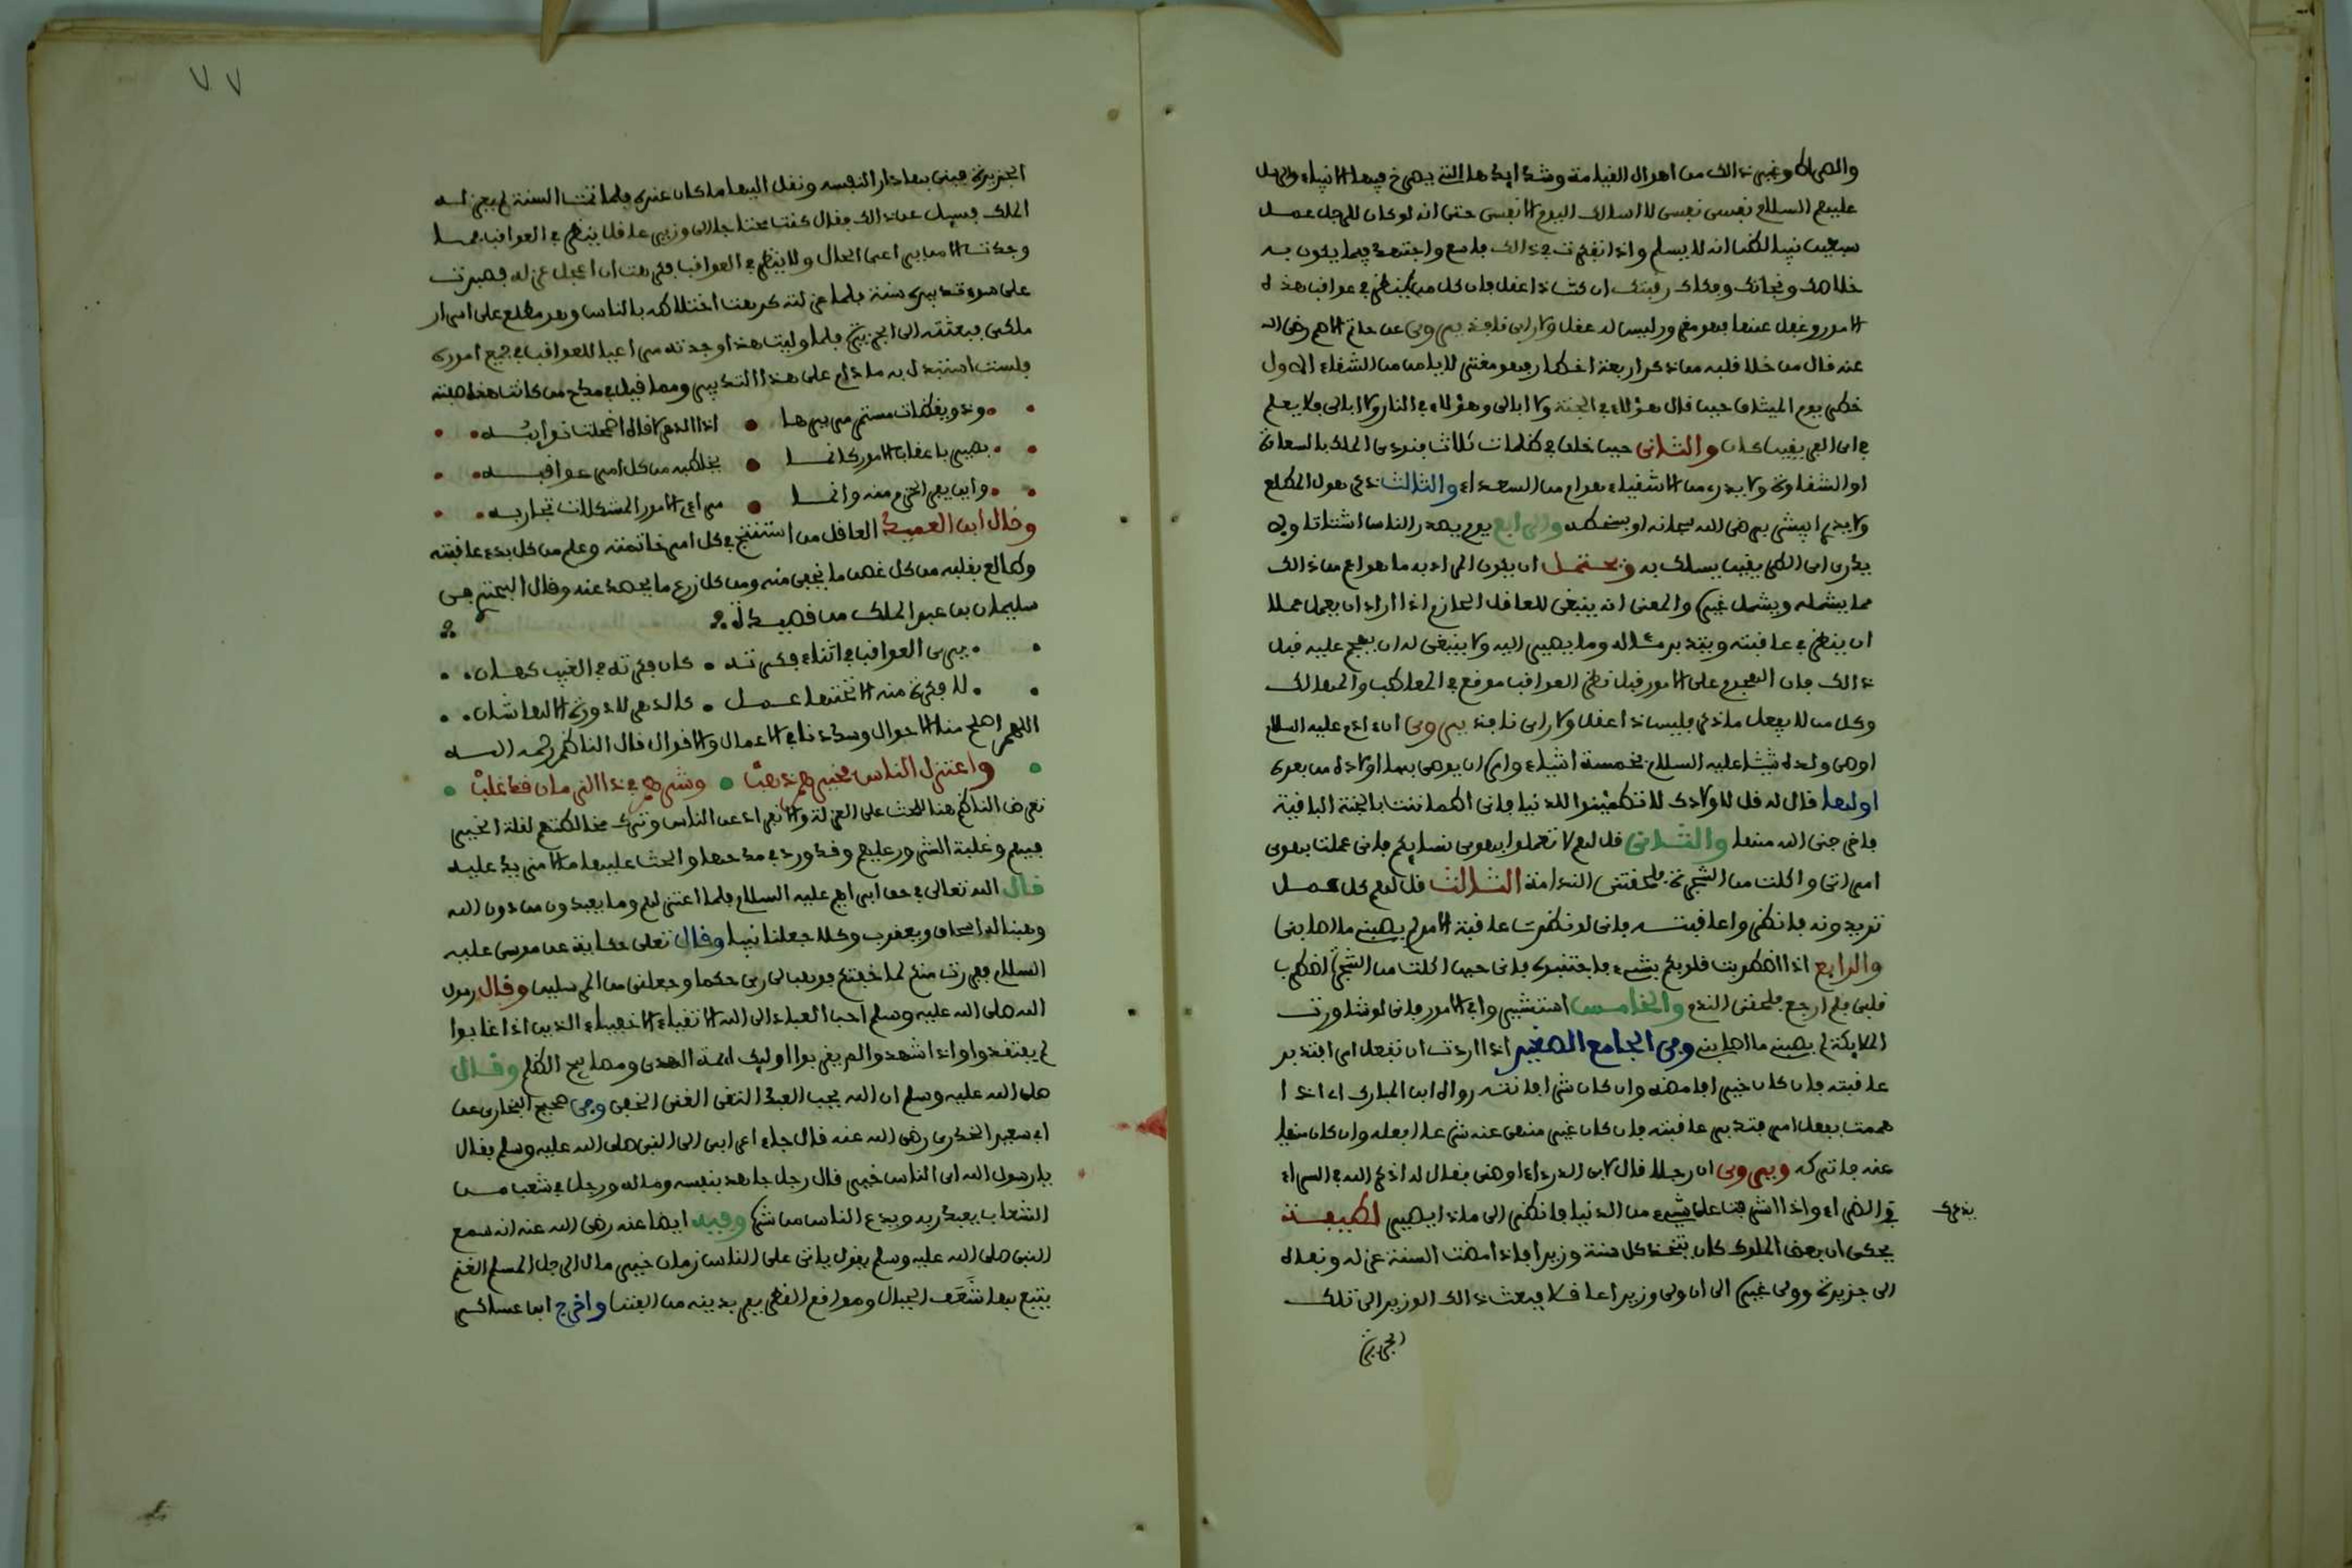 والصراط وغير ذالك من اهوال القيامة وشدايدها التي يصرخ فيها الانبياء والرسل
عليهم السلام نفسي نفسي لا اسالك اليوم الا نفسي حتى انه لو كان للرجل عمل
سبعين نبيا لظن انه لا يسلم واذا تفكرت في ذالك فاسع واجتهد فيما يكون به
خلاصك ونجاتك وفكاك رقبتك ان كنت ذا عقل فان كل من لم ينظر في عواقب هذه
الامور وغفل عنها فهو مغرور ليس له عقل ولا راي نافذ يروى عن حاتم الاصم رضي الله
عنه قال من خلا قلبه من ذكر اربعة اخطار فهو مغتر لا يامن من الشقاء الاول
خطر يوم الميثاق حين قال هؤلاء في الجنة ولا ابالي وهؤلاء في النار ولا ابالي ولا يعلم
في اي الفريقين كان والثاني حين خلق في ظلمات ثلاث فنودي الملك بالسعادة
او الشقاوة ولا يدري من الاشقياء هو ام من السعداء والثالث ذكر هول المطلع
ولا يدري ايبشر برضى الله سبحانه او بسخطه والرابع يوم يصدر الناس اشتاتا ولا
يدري اي الطريقين يسلك به ويحتمل ان يكون المراد به ما هو اعم من ذالك
مما يشمله ويشمل غيره والمعنى انه ينبغي للعاقل الحازم اذا اراد ان يعمل عملا
ان ينظر في عاقبته ويتدبر مثاله وما يصير اليه ولا ينبغي له ان يهجم عليه قبل
ذالك فان الهجوم على الامور قبل نظر العواقب موقع في المعاطب والمهالك
وكل من لا يفعل ما ذكر فليس ذا عقل ولا راي نافذ يروى ان ءادم عليه السلام
اوصى ولده شيثا عليه السلام بخمسة اشياء وامره ان يوصي بها اولاده من بعده
اولها قال له قل لاولادك لا تطمئنوا للدنيا فاني اطماننت بالجنة الباقية
فاخرجني الله منها والثاني قل لهم لا تعملوا بهوى نسايكم فاني عملت بهوى
امراتي واكلت من الشجرة فلحقتني الندامة الثالث قل لهم كل عمل
تريدونه فانظروا عاقبته فاني لو نظرت عاقبة الامر لم يصبني ما اصابني
والرابع اذا اضطربت قلوبكم بشيء فاجتنبوه فاني حين اكلت من الشجرة اضطرب
قلبي فلم ارجع فلحقني الندم والخامس استشيروا في الامور فاني لو شاورت
الملايكة لم يصبني ما اصابني وفي الجامع الصغير اذا اردت ان تفعل امرا فتدبر
عاقبته فان كان خيرا فامضه وان كان شرا فانته رواه ابن المبارك اي اذا
هممت بفعل امر فتدبر عاقبته فان كان غير منهي عنه شرعا فافعله وان كان منهيا
عنه فاتركه ويروى ان رجلا قال لابي الدرداء اوصني فقال له اذكر الله في السراء
والضراء واذا اشرفت على شيء من الدنيا فانظر الى ماذا يصير لطيفة
يحكى ان بعض الملوك كان يتخذ كل سنة وزيرا فاذا مضت السنة عزله ونفاه
الى جزيرة وولى غيره الى ان ولى وزيرا عاقلا فبعث ذالك الوزير الى تلك
الجزيرة
يذكرك
٧٧
الجزيرة فبنى بها دار النفسه ونقل اليها ما كان عنده فلما تمت السنة لم يعزله
الملك فسيل عن ذالك فقال كنت محتاجا الى وزير عاقل ينظر في العواقب فما
وجدت الا من يرى اعم الحال ولا ينظر في العواقب فكرهت ان اعجل عزله فصبرت
على سوء تدبيره سنة فلما عزلته كرهت اختلاطه بالناس وهو مطلع على اسرار
ملكي فبعثته الى الجزيرة فلما وليت هذا وجدته مراعيا للعواقب في جميع اموره
فلست استبدل به ما دام على هذا التدبير ومما قيل في مدح من كانت هذه صفته
وذو يقظات مستمر مريرها • اذا الدهر لاقاه اضمحلت نوايبه
بصير باعقاب الامور كانما • يخاطبه من كل امر عواقبه
واين يفر الحزم منه وانما • مرائي الامور المشكلات تجاربه
وقال ابن العميد العاقل من استفتح في كل امر خاتمته وعلم من كل بدء عاقبته
وطالع بقلبه من كل غرس ما يجنى منه ومن كل زرع ما يحصد عنه وقال البحتري في
سليمان بن عبد الملك من قصيدة
يرى العواقب في اثناء فكرته • كان فكرته في الغيب كهان
لا فكرة منه الا تحتها عمل • كالدهر لا دورة الا لها شان
اللهم اصلح منا الاحوال وسددنا في الاعمال والاقوال قال الناظم رحمه الله
واعتزل الناس فخيرهم ذهب • وشرهم في ذا الزمان قد غلب
تعرض الناظم هنا للحث على العزلة والانفراد عن الناس وترك مخالطتهم لقلة الخير
فيهم وغلبة الشرور عليهم وقد ورد في مدحها والحث عليها ما لا مزيد عليه
قال الله تعالى في حق ابراهيم عليه السلام فلما اعتزلهم وما يعبدون من دون الله
وهبنا له اسحاق ويعقوب وكلا جعلنا نبيا وقال تعلى حكاية عن موسى عليه
السلام ففررت منكم لما خفتكم فوهب لي ربي حكما وجعلني من المرسلين وقال رسول
الله صلى الله عليه وسلم احب العباد الى الله الاتقياء الاخفياء الذين اذا غابوا
لم يفتقدوا واذا شهدوا لم يعرفوا اوليك ايمة الهدى ومصابيح الظلم وقال
صلى الله عليه وسلم ان الله يحب العبد التقي الغني الخفي وفي صحيح البخاري عن
ابي سعيد الخدري رضي الله عنه قال جاء اعرابي الى النبي صلى الله عليه وسلم فقال
يا رسول الله اي الناس خير قال رجل جاهد بنفسه وماله ورجل في شعب من
الشعاب يعبد ربه ويدع الناس من شره وفيه ايضا عنه رضي الله عنه انه سمع
النبي صلى الله عليه وسلم يقول ياتي على الناس زمان خير مال الرجل المسلم الغنم
يتبع بها شعف الجبال ومواقع القطر يفر بدينه من الفتن واخرج ابن عساكر